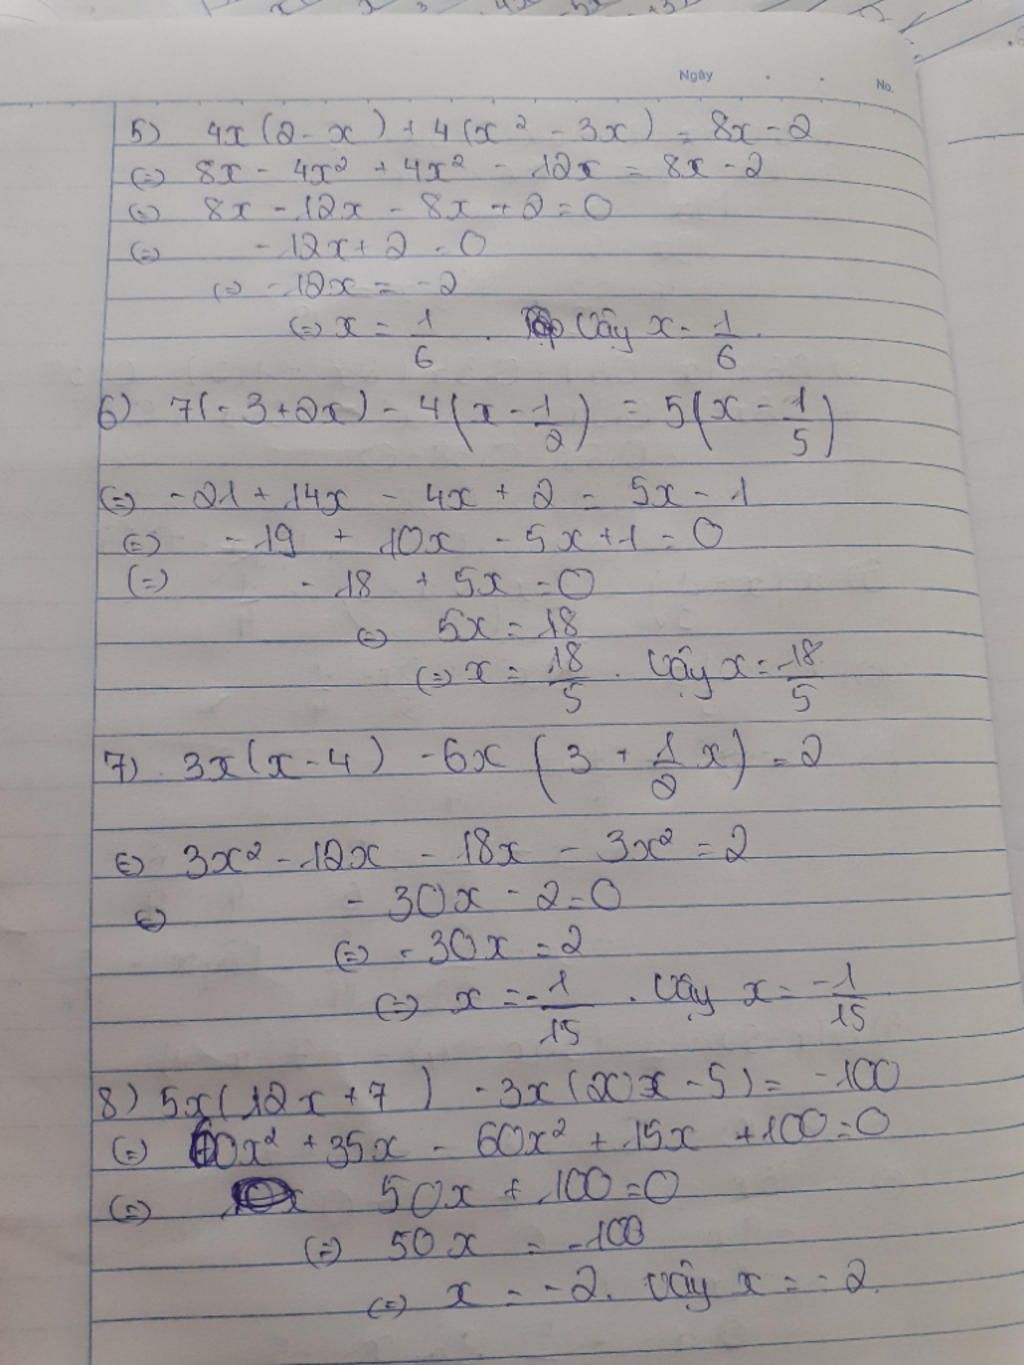 Ngày No.
5) 4x(2-x) + 4(x² - 3x) = 8x - 2
(=) 8x - 4x² + 4x² - 12x = 8x - 2
(=) 8x - 12x - 8x + 2 = 0
(=) - 12x + 2 = 0
(=) - 12x = - 2
(=) x = 1/6 . Vậy x = 1/6 .
6) 7(-3+2x) - 4(x - 1/2) = 5(x - 1/5)
(=) - 21 + 14x - 4x + 2 = 5x - 1
(=) - 19 + 10x - 5x + 1 = 0
(=) - 18 + 5x = 0
(=) 5x = 18
(=) x = 18/5 . Vậy x = 18/5
7) 3x(x-4) - 6x (3 + 1/2 x) = 2
(=) 3x² - 12x - 18x - 3x² = 2
(=) - 30x - 2 = 0
(=) - 30x = 2
(=) x = -1/15 . Vậy x = -1/15
8) 5x(12x+7) - 3x(20x - 5) = - 100
(=) 60x² + 35x - 60x² + 15x + 100 = 0
(=) 50x + 100 = 0
(=) 50x = -100
(=) x = - 2. Vậy x = - 2.